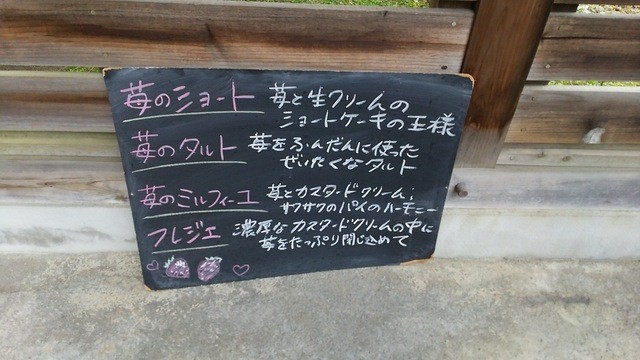 苺のショート 苺と生クリームの
ショートケーキの王様
苺のタルト 苺をふんだんに使った
ぜいたくなタルト
苺のミルフィーユ 苺とカスタードクリーム;
サクサクのパイのハーモニー
フレジェ 濃厚なカスタードクリームの中に
苺をたっぷり閉じ込めて